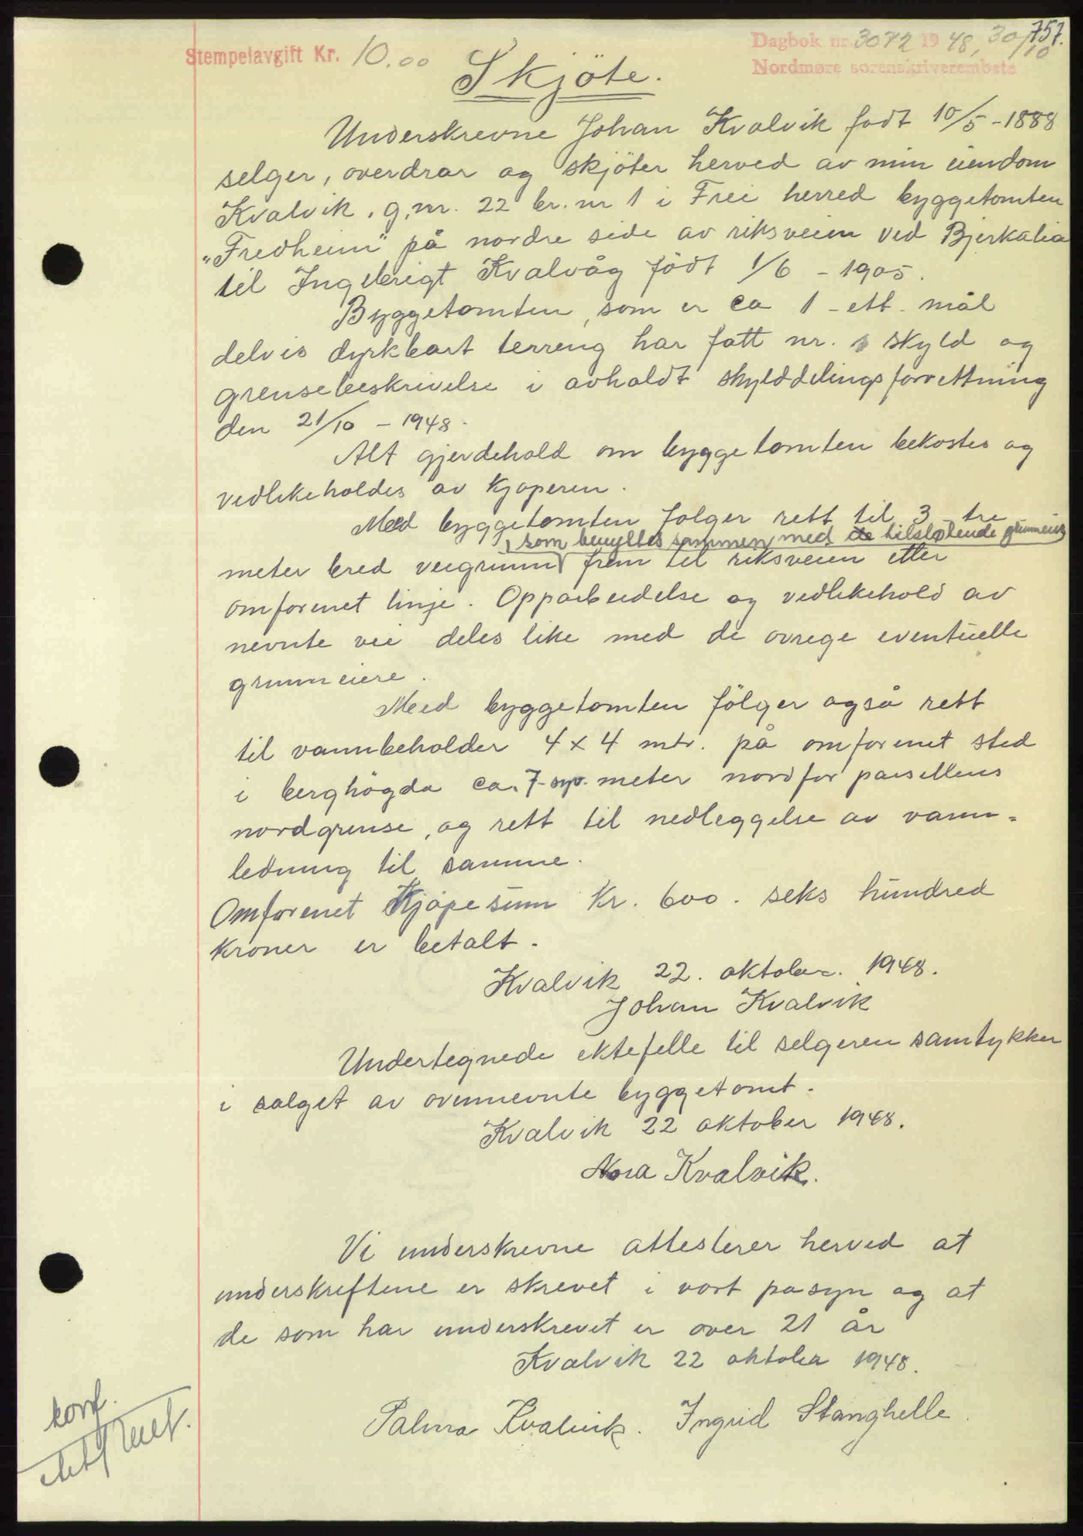 757.
Stempelavgift Kr. 10.00
Dagbok nr. 3072 1948, 30/10
Nordmøre sorenskriverembete
Skjöte.
Underskrevne Johan Kvalvik født 10/5-1888
selger, overdrar og skjöter herved av min eiendom
Kvalvik, g.nr. 22 br. nr 1 i Frei herred byggetomten
"Fredheim" på nordre side av riksveien ved Bjerkalia
til Ingebrigt Kvalvåg födt 1/6 - 1905.
Byggetomten, som er ca 1 - ett - mål
delvis dyrkbart terreng har fått nr. skyld og
grensebeskrivelse i avholdt skylddelingsforrettning
den 21/10 - 1948.
Alt gjerdehold om byggetomten bekostes og
vedlikeholdes av kjøperen.
Med byggetomten følger rett til 3 - tre
som benyttes sammen med tilstøtende grunneiere
meter bred veigrunn frem til riksveien etter
omforenet linje. Opparbeidelse og vedlikehold av
nevnte vei deles like med de øvrege eventuelle
grunneiere.
Med byggetomten fölger også rett
til vannbeholder 4 x 4 mtr. på omforenet sted
i berghögda ca. 7-syv- meter nordfor parsellens
nordgrense, og rett til nedleggelse av vann-
ledning til samme.
Omforenet Kjöpesum Kr. 600. seks hundred
kroner er betalt.
Kvalvik 22. oktober. 1948.
Johan Kvalvik
Undertegnede ektefelle til selgeren samtykker
i salget av ovennevnte byggetomt.
Kvalvik 22 oktober 1948.
Nora Kvalvik.
Vi underskrevne attesterer herved at
underskriftene er skrevet i vort påsyn og at
de som har underskrevet er over 21 år
Kvalvik 22 oktober 1948.
Palma Kvalvik. Ingrid Stanghelle.
konf.